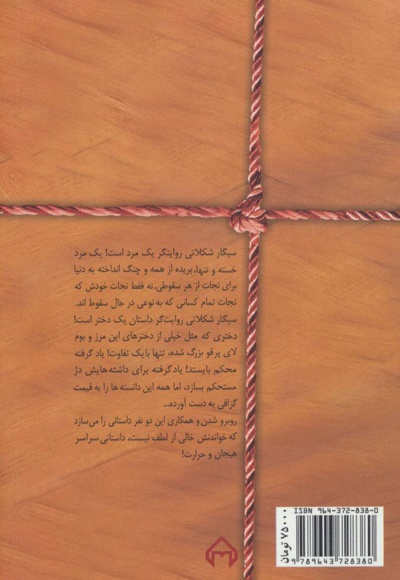 سیگار شکلاتی روایتگر یک مرد است! یک مرد
خسته و تنها، بریده از همه و چنگ انداخته به دنیا
برای نجات از هر سقوطی. نه فقط نجات خودش که
نجات تمام کسانی که به‌نوعی در حال سقوط اند.
سیگار شکلاتی روایت‌گر داستان یک دختر است!
دختری که مثل خیلی از دخترهای این مرز و بوم
لای پر قو بزرگ شده، تنها با یک تفاوت! یاد گرفته
محکم بایستد! یاد گرفته برای داشته‌هایش دژ
مستحکم بسازد، اما همه این دانسته ها را به قیمت
گزافی به دست آورده...
روبرو شدن و همکاری این دو نفر داستانی را می‌سازد
که خواندنش خالی از لطف نیست، داستانی سراسر
هیجان و حرارت!
ISBN 964-372-838-0
9 789643 728380
۷۵۰۰۰ تومان